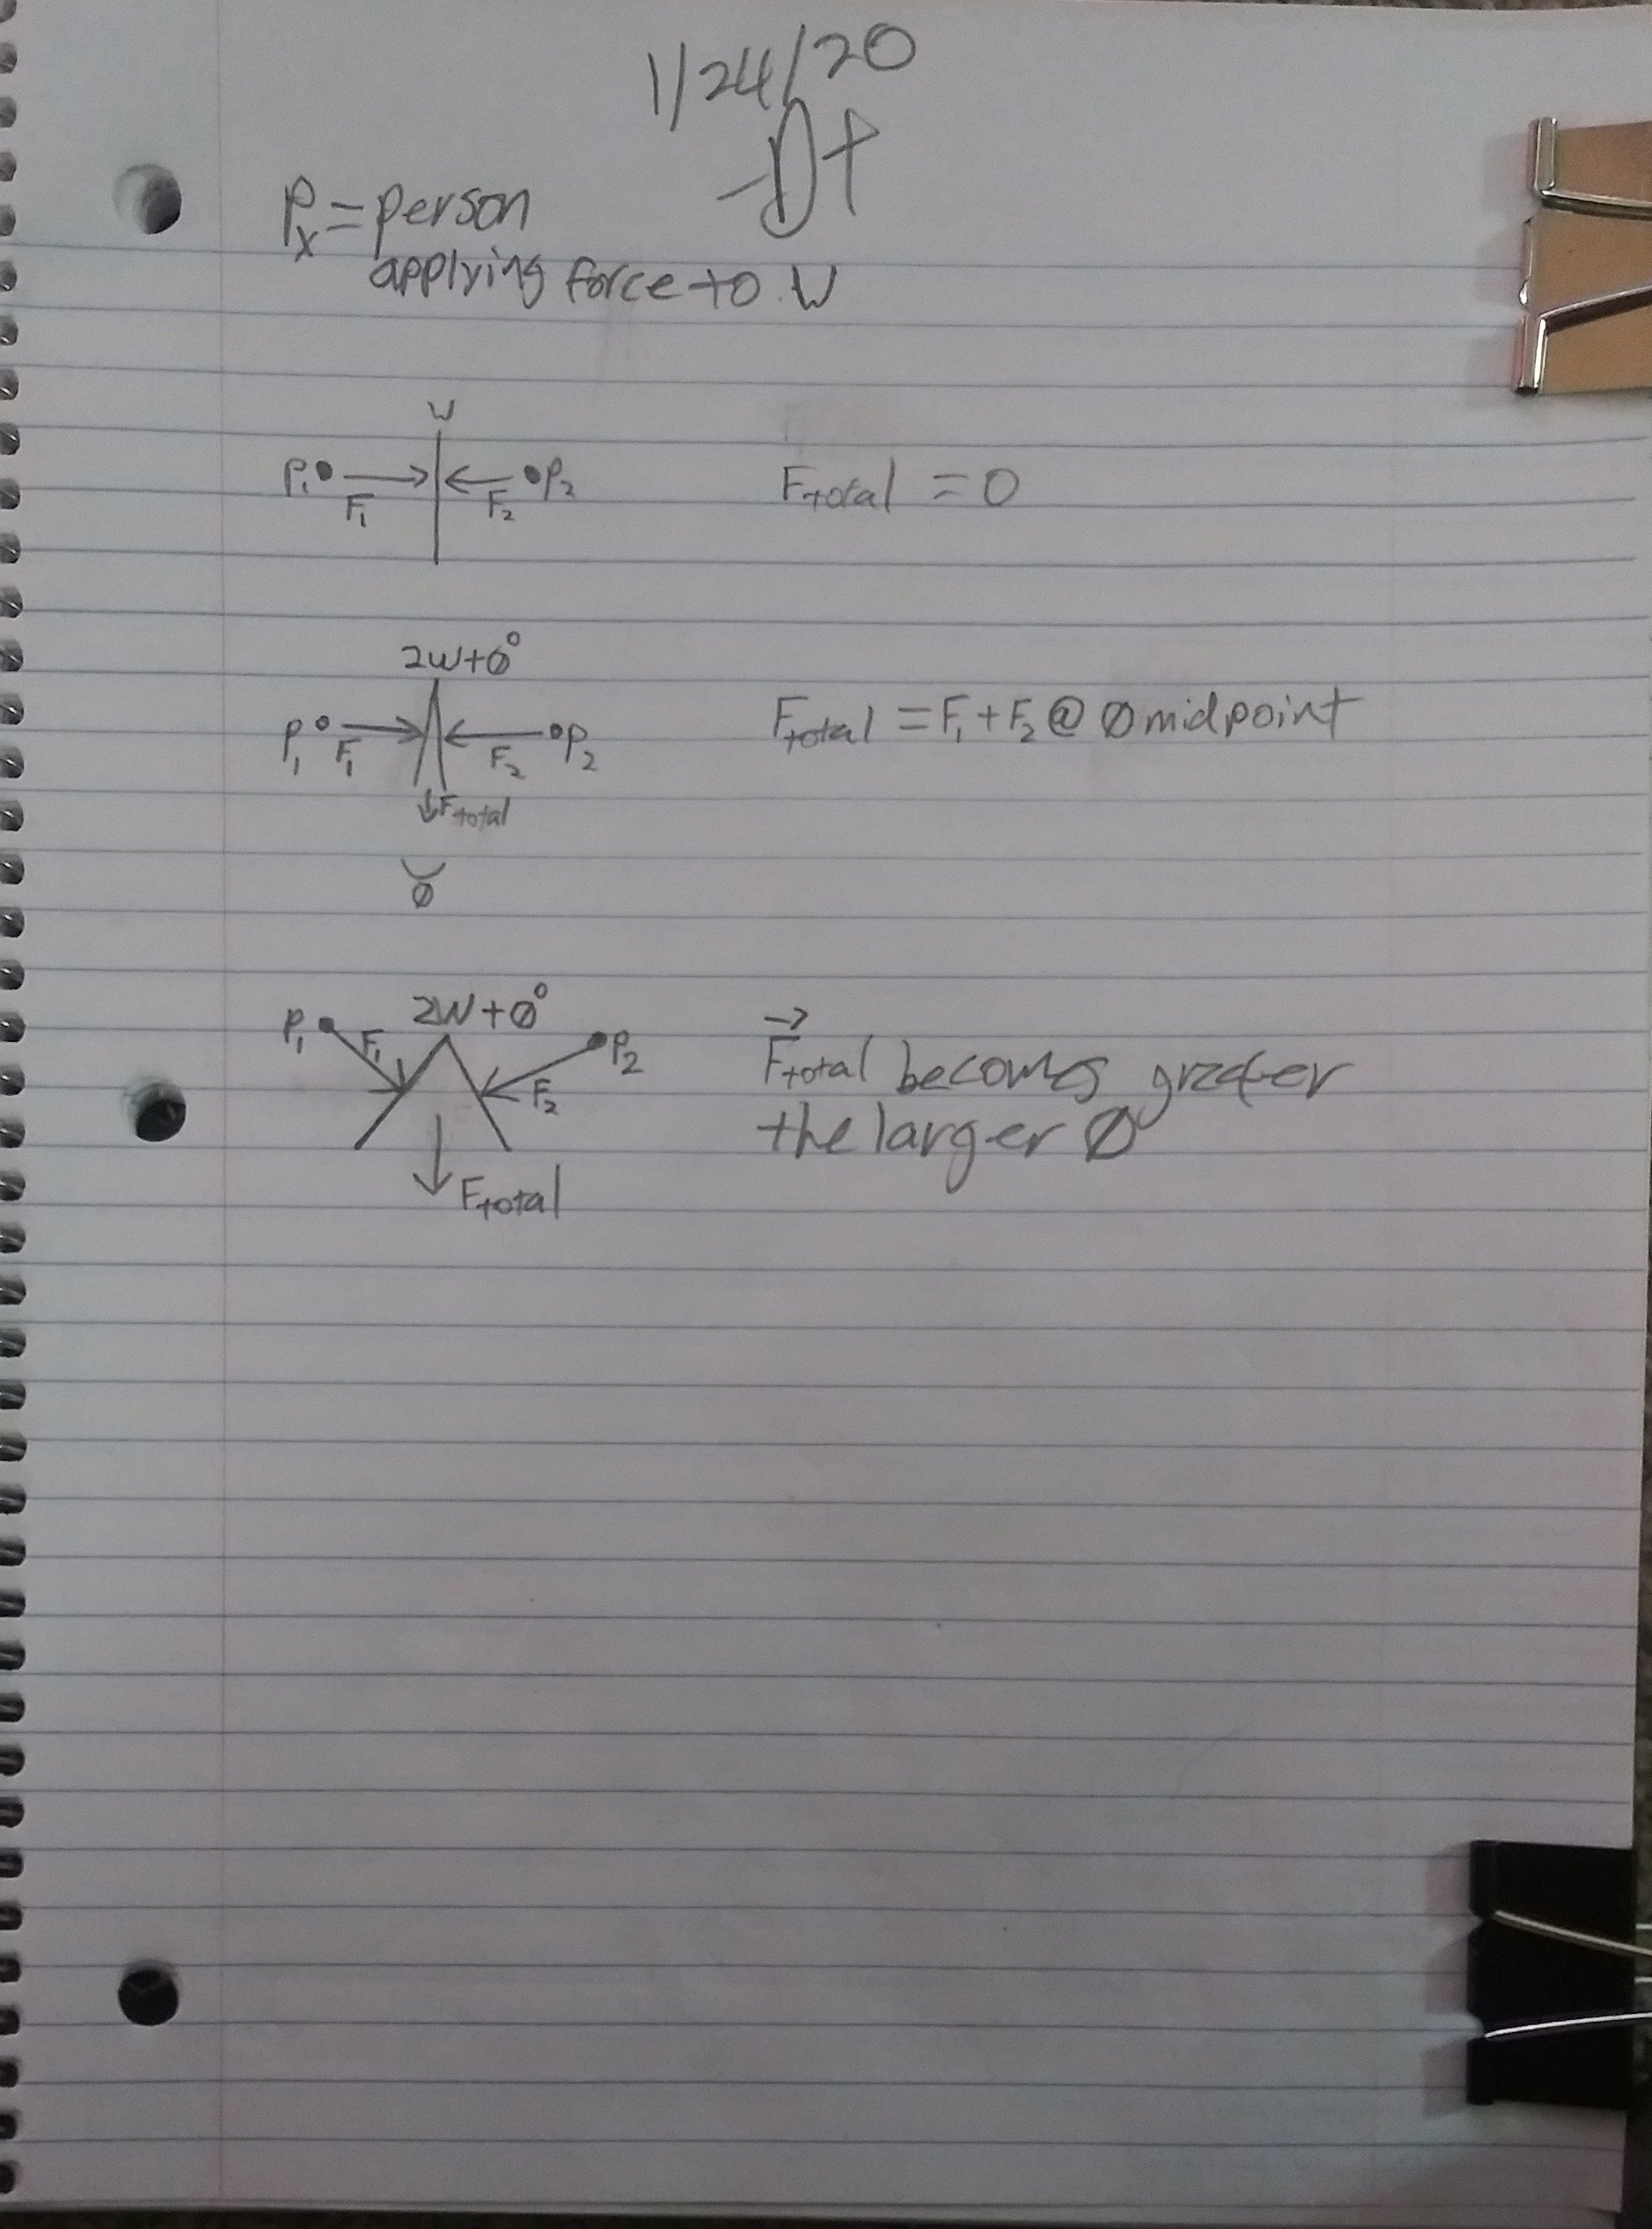 1/24/20
-DT
Pₓ = person
applying force to W
W
P₁ F₁ F₂ P₂
Ftotal = 0
2W+Ø°
P₁ F₁ F₂ P₂
Ftotal = F₁ + F₂ @ Ø midpoint
Ftotal
Ø
2W+Ø°
P₁ F₁ F₂ P₂
Ftotal
F⃗total becomes greater
the larger Ø